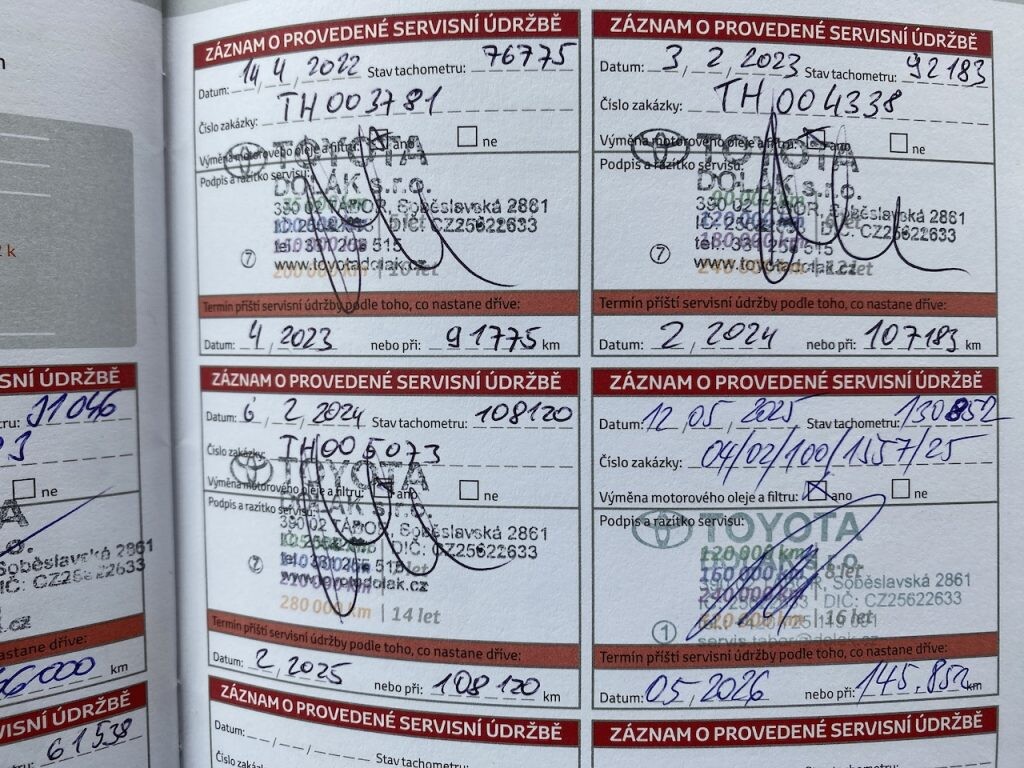 k
SNÍ ÚDRŽBĚ
ne
Soběslavská 2861
DIČ: CZ25622633
nastane dříve:
km
VISNÍ ÚDRŽBĚ
61538
ZÁZNAM O PROVEDENÉ SERVISNÍ ÚDRŽBĚ
Datum: 14, 4, 2022 Stav tachometru: 76775
Číslo zakázky: TH003781
Výměna motorového oleje a filtru: ano ne
Podpis a razítko servisu:
TOYOTA
DOLÁK s.r.o.
390 02 TÁBOR, Soběslavská 2861
DIČ: CZ25622633
tel.: 381 205 515
7
www.toyotadolak.cz
Termín příští servisní údržby podle toho, co nastane dříve:
Datum: 4, 2023 nebo při: 91775 km
ZÁZNAM O PROVEDENÉ SERVISNÍ ÚDRŽBĚ
Datum: 3, 2, 2023 Stav tachometru: 92183
Číslo zakázky: TH004338
Výměna motorového oleje a filtru: ano ne
Podpis a razítko servisu:
TOYOTA
DOLÁK s.r.o.
390 02 TÁBOR, Soběslavská 2861
DIČ: CZ25622633
7
www.toyotadolak.cz
Termín příští servisní údržby podle toho, co nastane dříve:
Datum: 2, 2024 nebo při: 107183 km
ZÁZNAM O PROVEDENÉ SERVISNÍ ÚDRŽBĚ
Datum: 6, 2, 2024 Stav tachometru: 108120
Číslo zakázky: TH005073
Výměna motorového oleje a filtru: ano ne
Podpis a razítko servisu:
TOYOTA
DOLÁK s.r.o.
390 02 TÁBOR, Soběslavská 2861
DIČ: CZ25622633
7
www.toyotadolak.cz
280 000 km | 14 let
Termín příští servisní údržby podle toho, co nastane dříve:
Datum: 2, 2025 nebo při: 108120 km
ZÁZNAM O PROVEDENÉ SERVISNÍ ÚDRŽBĚ
Datum: 12, 05, 2025 Stav tachometru: 130852
Číslo zakázky: 04/02/100/1557/25
Výměna motorového oleje a filtru: ano ne
Podpis a razítko servisu:
TOYOTA
120 000 km
160 000 km 8 let
Soběslavská 2861
240 000 km
DIČ: CZ25622633
16 let
1
servis.tabor@dolak.cz
Termín příští servisní údržby podle toho, co nastane dříve:
Datum: 05, 2026 nebo při: 145.852 km
ZÁZNAM O PROVEDENÉ SERVISNÍ ÚDRŽBĚ
Datum: Stav tachometru:
Číslo zakázky:
ZÁZNAM O PROVEDENÉ SERVISNÍ ÚDRŽBĚ